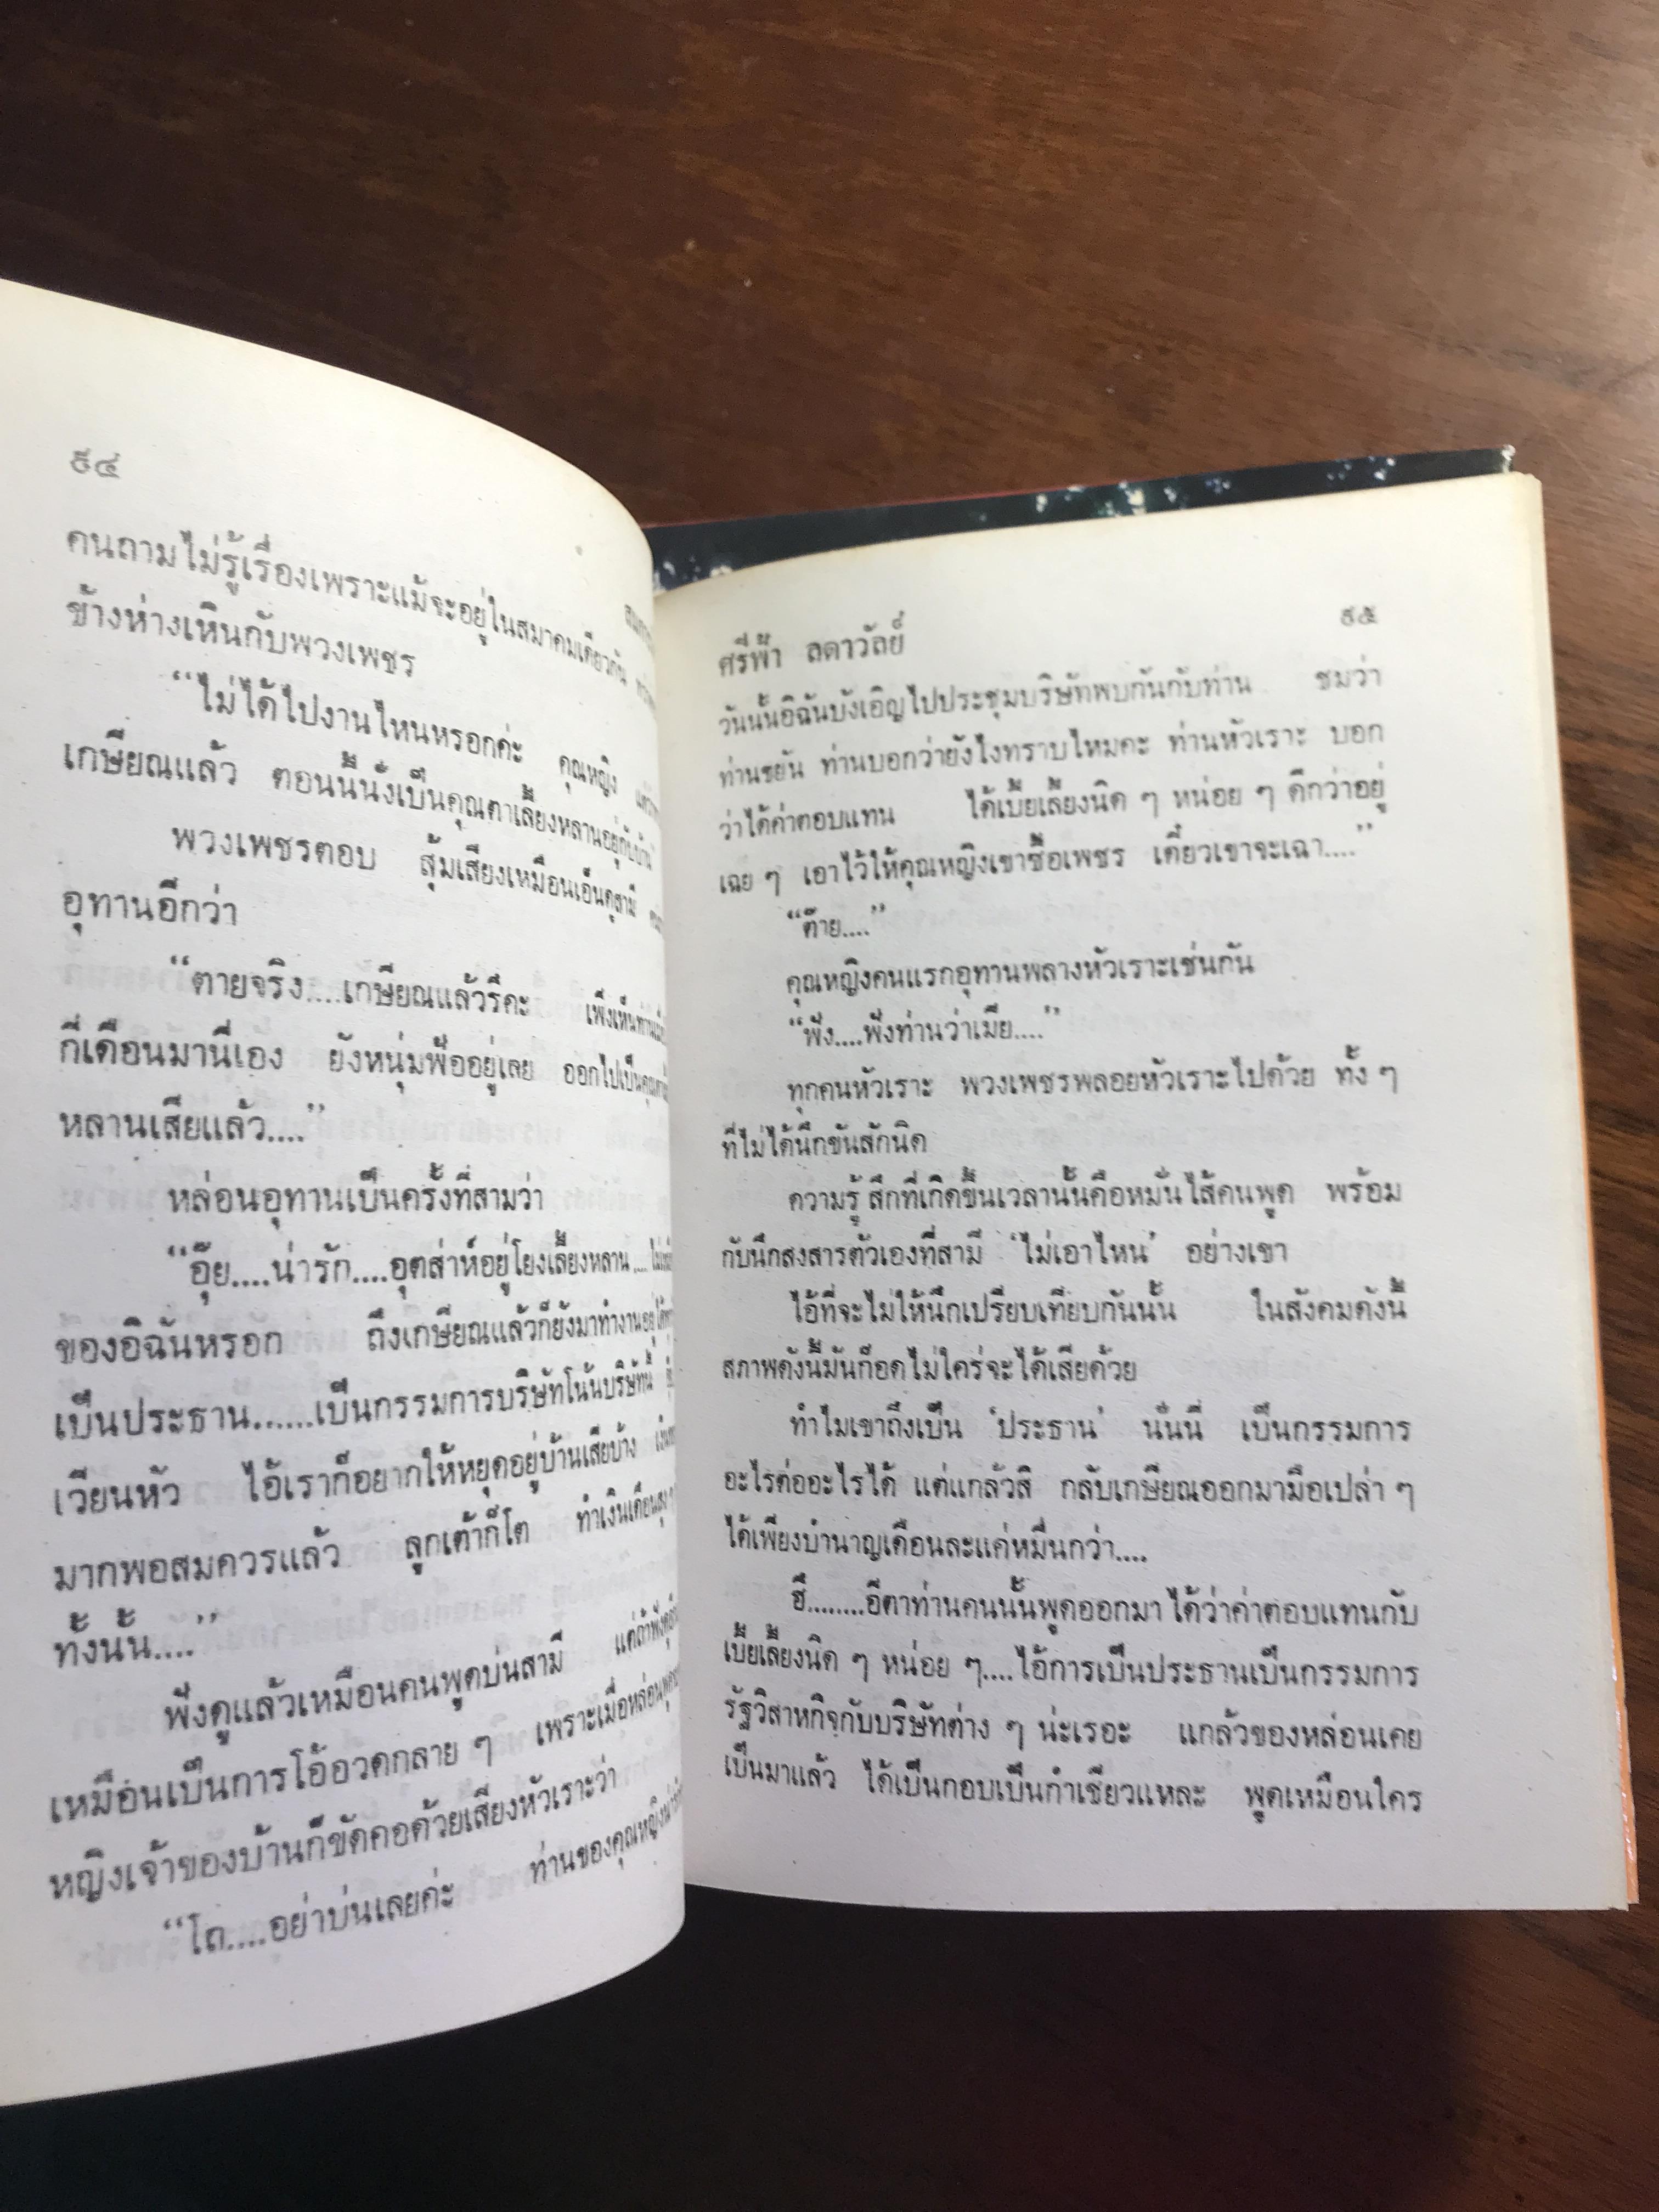 ๙๔
คนถามไม่รู้เรื่องเพราะแม้จะอยู่ในสมาคมเดียวกัน
ข้างห่างเหินกับพวงเพชร
“ไม่ได้ไปงานไหนหรอกค่ะ คุณหญิง
เกษียณแล้ว ตอนนี้นั่งเป็นคุณตาเลี้ยงหลานอยู่กับบ้าน”
พวงเพชรตอบ สุ้มเสียงเหมือนเอ็นดูสามี
อุทานอีกว่า
“ตายจริง....เกษียณแล้วรึคะ เพิ่งเห็นท่าน
กี่เดือนมานี่เอง ยังหนุ่มฟ้ออยู่เลย ออกไปเป็นคุณตา
หลานเสียแล้ว....”
หล่อนอุทานเป็นครั้งที่สามว่า
“อุ๊ย....น่ารัก....อุตส่าห์อยู่โยงเลี้ยงหลาน....
ของอิฉันหรอก ถึงเกษียณแล้วก็ยังมาทำงานอยู่
เป็นประธาน......เป็นกรรมการบริษัทโน้นบริษัทนี้
เวียนหัว ไอ้เราก็อยากให้หยุดอยู่บ้านเสียบ้าง
มากพอสมควรแล้ว ลูกเต้าก็โต ทำเงินเดือนสูง ๆ
ทั้งนั้น....”
ฟังดูแล้วเหมือนคนพูดบ่นสามี แต่ถ้าฟังดู
เหมือนเป็นการโอ้อวดกลาย ๆ เพราะเมื่อหล่อนพูด
หญิงเจ้าของบ้านก็ขัดคอด้วยเสียงหัวเราะว่า
“โถ....อย่าบ่นเลยค่ะ ท่านของคุณหญิง
ศรีฟ้า ลดาวัลย์ ๙๕
วันนั้นอิฉันบังเอิญไปประชุมบริษัทพบกันกับท่าน ชมว่า
ท่านขยัน ท่านบอกว่ายังไงทราบไหมคะ ท่านหัวเราะ บอก
ว่าได้ค่าตอบแทน ได้เบี้ยเลี้ยงนิด ๆ หน่อย ๆ ดีกว่าอยู่
เฉย ๆ เอาไว้ให้คุณหญิงเขาซื้อเพชร เดี๋ยวเขาจะเฉา....”
“ต๊าย....”
คุณหญิงคนแรกอุทานพลางหัวเราะเช่นกัน
“ฟัง....ฟังท่านว่าเมีย....”
ทุกคนหัวเราะ พวงเพชรพลอยหัวเราะไปด้วย ทั้ง ๆ
ที่ไม่ได้นึกขันสักนิด
ความรู้สึกที่เกิดขึ้นเวลานั้นคือหมั่นไส้คนพูด พร้อม
กับนึกสงสารตัวเองที่สามี ‘ไม่เอาไหน’ อย่างเขา
ไอ้ที่จะไม่ให้นึกเปรียบเทียบกันนั้น ในสังคมดังนี้
สภาพดังนี้มันก็อดไม่ใคร่จะได้เสียด้วย
ทำไมเขาถึงเป็น ‘ประธาน’ นั่นนี่ เป็นกรรมการ
อะไรต่ออะไรได้ แต่แกล้วสิ กลับเกษียณออกมามือเปล่า ๆ
ได้เพียงบำนาญเดือนละแค่หมื่นกว่า....
ฮึ........อีตาท่านคนนั้นพูดออกมาได้ว่าค่าตอบแทนกับ
เบี้ยเลี้ยงนิด ๆ หน่อย ๆ....ไอ้การเป็นประธานเป็นกรรมการ
รัฐวิสาหกิจกับบริษัทต่าง ๆ น่ะเรอะ แกล้วของหล่อนเคย
เป็นมาแล้ว ได้เป็นกอบเป็นกำเชียวแหละ พูดเหมือนใคร